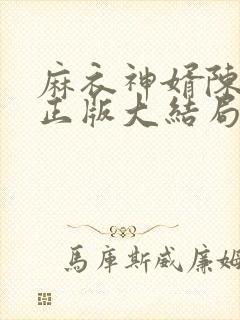 麻衣神婿陳
正版大結局
馬庫斯威廉姆